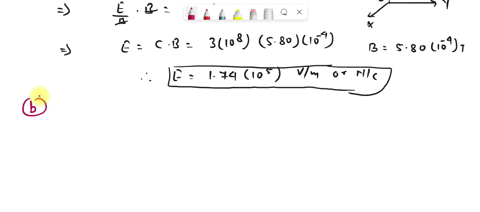 => E/B · B =
x y
=> E = C·B = 3(10⁸) (5.80)(10⁻⁴) B = 5.80(10⁻⁴)T
∴ E = 1.74 (10⁵) V/m or N/C
b